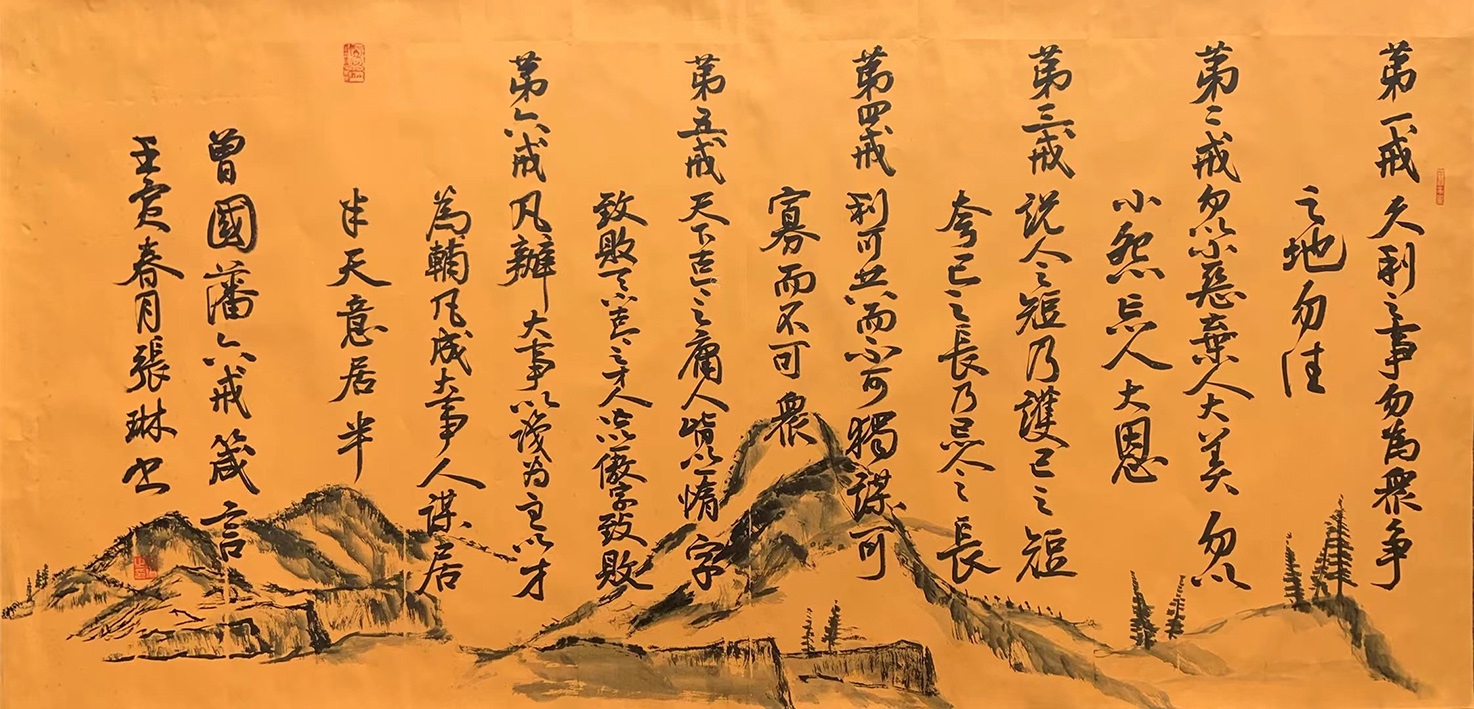 第一戒 久利之事勿為眾争
之地勿往
第二戒勿以小惡棄人大美勿以
小怨忘人大恩
第三戒說人之短乃護己之短
夸己之長乃忌人之長
第四戒利可共而不可獨謀可
寡而不可眾
第五戒天下古今之庸人皆以一惰字
致敗天下古今之才人皆以一傲字致敗
第六戒凡辦大事以識为主以才
為輔凡成大事人謀居
半天意居半
曾國藩六戒箴言
壬寅春月張琳书